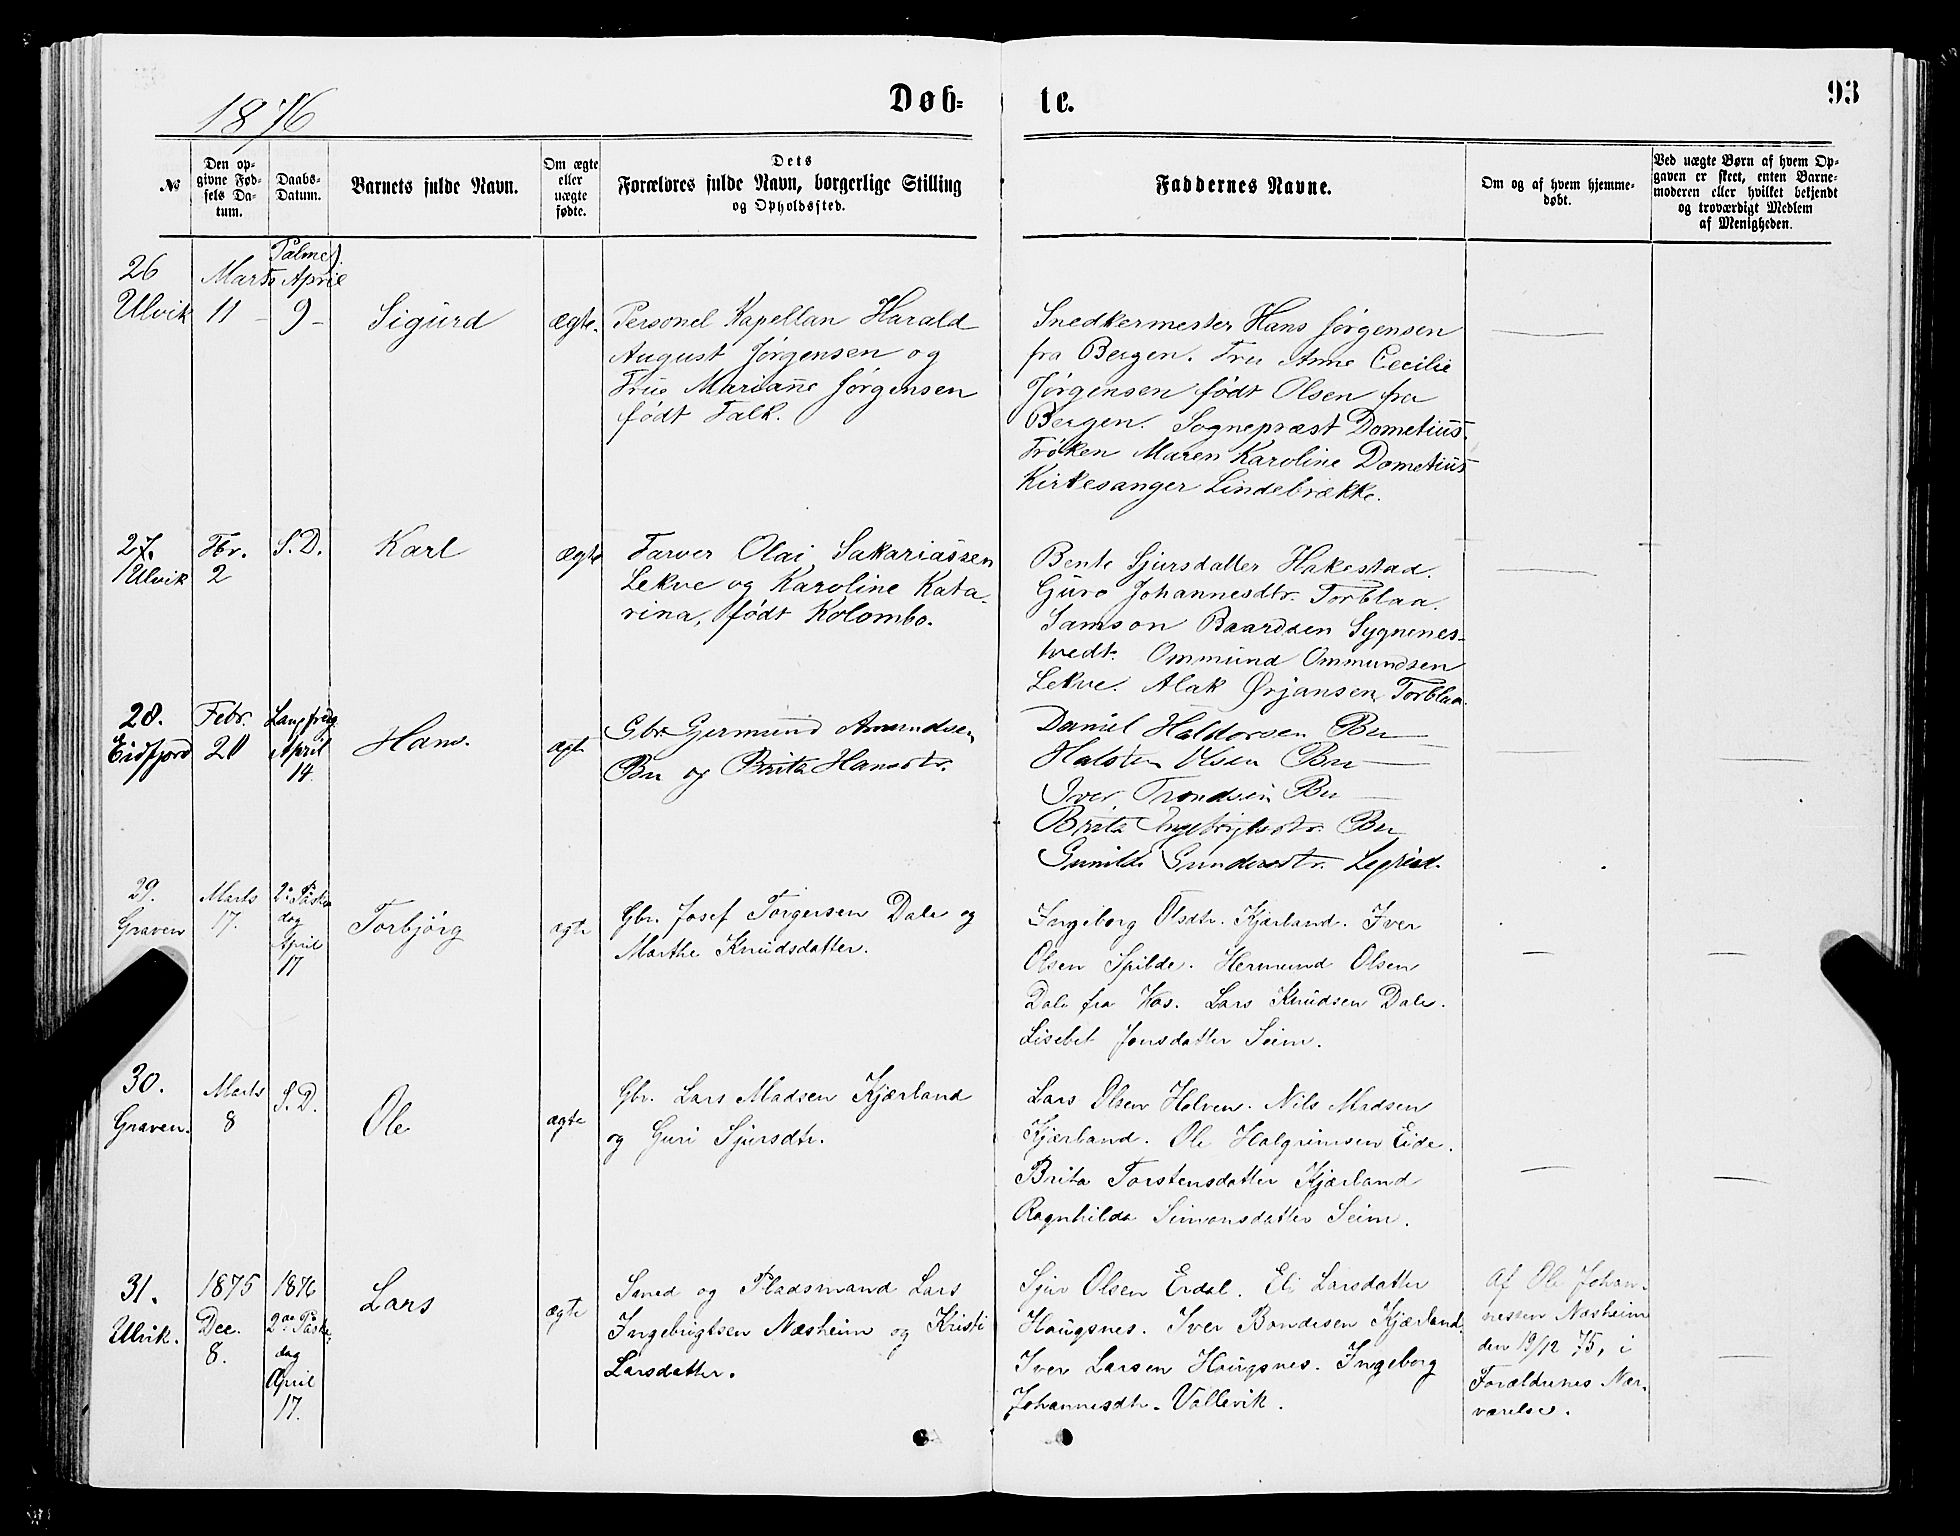 1876
Døb-
te.
93
№
Den op-
givne Fød-
sels Da-
tum.
Daabs-
Datum.
Barnets fulde Navn.
Om ægte
eller
uægte
fødte.
Dets
Forældres fulde Navn, borgerlige Stilling
og Opholdssted.
Faddernes Navne.
Om og af hvem hjemme-
døbt.
Ved uægte Børn af hvem Op-
gaven er skeet, enten Barne-
moderen eller hvilket bekjendt
og troværdigt Medlem
af Menigheden.
26
Ulvik
Marts
11 -
Palmes.
April
9 -
Sigurd
ægte.
Personel Kapellan Harald
August Jørgensen og
Frue Marianne Jørgensen
født Falk.
Snedkermester Hans Jørgensen
fra Bergen. Fru Anne Cecilie
Jørgensen født Olsen fra
Bergen. Sognepræst Dometius.
Frøken Maren Karoline Dometius
Kirkesanger Lindebrække.
27.
Ulvik
Fbr.
2
S. D.
Karl
ægte
Farver Olai Sakariassen
Lekve og Karoline Kata-
rina, født Kolombo.
Bente Sjursdatter Hakestad.
Guro Johannesdtr. Torblaa.
Samson Baardsen Sygnenes-
tvedt. Ommund Ommundsen
Lekve. Alak Ørjansen Torblaa.
28.
Eidfjord
Febr.
20
Langfrdg
April
14.
Hans.
ægte
Gbr. Germund Amundsen
Bu og Brita Hansdtr.
Daniel Haldorsen Bu
Halsten Olsen Bu
Iver Trondsen Bu
Brita Ingebrigtsdtr. Bu
Gunilde Gundersdtr. Legreid.
29.
Graven
Marts
17.
2n Paaske
dag
April
17
Torbjørg
ægte
Gbr. Josef Torgersen Dale og
Marthe Knudsdatter.
Ingeborg Olsdtr. Kjærland. Iver
Olsen Spilde. Hermund Olsen
Dale fra Vos. Lars Knudsen Dale.
Lisebet Jonsdatter Seim.
30.
Graven.
Marts
8
S. D.
Ole
ægte
Gbr. Lars Madsen Kjærland
og Guri Sjursdtr.
Lars Olsen Holven. Nils Madsen
Kjærland. Ole Halgrimsen Eide.
Brita Torstensdatter Kjærland
Ragnhilda Simonsdatter Seim.
31.
Ulvik.
1875
Dec.
8.
1876
2den Paaske
dag
April
17.
Lars
ægte
Smed og Pladsmand Lars
Ingebrigtsen Næsheim og Kristi
Larsdatter.
Sjur Olsen Erdal. Eli Larsdatter
Haugsnes. Iver Bondesen Kjærland.
Iver Larsen Haugsnes. Ingeborg
Johannesdtr. Vallevik.
Af Ole Johan-
nessen Næsheim
den 19/12 75, i
Forældrenes Nær-
værelse.